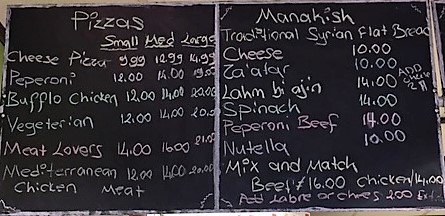 Pizzas
Small Med Large
Cheese Pizza 9.99 12.99 14.99
Peperoni 12.00 14.00
Bufflo Chicken 12.00 14.00
Vegeterian 12.00 14.00
Meat Lovers 14.00 16.00
Mediterranean 12.00 14.00 20.00
Chicken Meat
Manakish
Traditional Syrian Flat Bread
Cheese 10.00
Za'atar 10.00
Lahm bi ajin 14.00
ADD
Spinach 14.00
Peperoni Beef 14.00
Nutella 10.00
Mix and Match
Beef 16.00 Chicken 14.00
Add Labne or chees 2.00